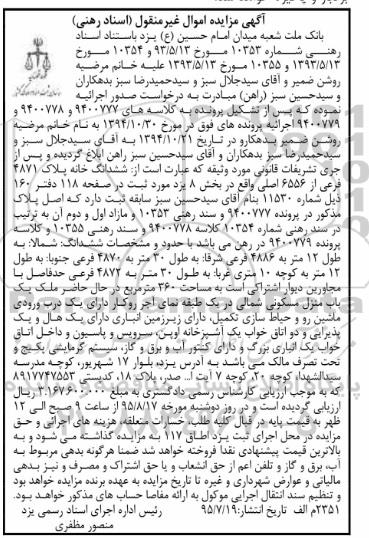 آگهی مزایده اموال غیرمنقول (اسناد رهنی)
بانک ملت شعبه میدان امام حسین (ع) یزد باستناد اسناد
رهنی شماره ۱۰۳۵۳ مورخ ۹۳/۵/۱۳ و ۱۰۳۵۴ مورخ
۱۳۹۳/۵/۱۳ و ۱۰۳۵۵ مورخ ۱۳۹۳/۵/۱۳ علیه خانم مرضیه
روشن ضمیر و آقای سیدجلال سبز و سیدحمیدرضا سبز بدهکاران
و سیدحسین سبز (راهن) مبادرت به درخواست صدور اجرائیه
نموده که پس از تشکیل پرونده به کلاسه های ۹۴۰۰۷۷۷ و ۹۴۰۰۷۷۸ و
۹۴۰۰۷۷۹ اجرائیه پرونده های فوق در مورخ ۱۳۹۴/۱۰/۳۰ به نام خانم مرضیه
روشن ضمیر بدهکارو در تاریخ ۱۳۹۴/۱۰/۲۱ به آقای سیدجلال سبز و
سیدحمیدرضا سبز بدهکاران و آقای سیدحسین سبز راهن ابلاغ گردیده و پس از
جری تشریفات قانونی مورد وثیقه که عبارت است از: ششدانگ خانه پلاک ۴۸۷۱
فرعی از ۶۵۵۶ اصلی واقع در بخش ۸ یزد مورد ثبت در صفحه ۱۱۸ دفتر ۱۶۰
ذیل شماره ۱۱۵۳۰ بنام آقای سیدحسین سبز سابقه ثبت دارد که اصل پلاک
مذکور در پرونده ۹۴۰۰۷۷۷ و سند رهنی ۱۰۳۵۳ و مازاد اول و دوم آن به ترتیب
در سند رهنی شماره ۱۰۳۵۴ کلاسه ۹۴۰۰۷۷۸ و سند رهنی ۱۰۳۵۵ و کلاسه
پرونده ۹۴۰۰۷۷۹ در رهن می باشد با حدود و مشخصات ششدانگ: شمالا: به
طول ۱۲ متر به ۴۸۸۶ فرعی شرقا: به طول ۳۰ متر به ۴۸۷۰ فرعی جنوبا: به طول
۱۲ متر به کوچه ۱۰ متری غربا: به طول ۳۰ متر به ۴۸۷۲ فرعی حدفاصل با
مجاورین دیوار اشتراکی است به مساحت ۳۶۰ مترمربع در حال حاضر ملک یک
باب منزل مسکونی شمالی در یک طبقه نمای آجر روکار دارای یک درب ورودی
ماشین رو و حیاط سازی تکمیل، دارای زیرزمین انباری دارای یک هال و یک
پذیرایی و دو اتاق خواب یک آشپزخانه اوپن، سرویس و پاسیون و داخل اتاق
خواب یک انباری بزرگ و دارای کنتور آب و برق و گاز، سیستم گرمایشی پکیج و
تحت تصرف مالک می باشد به آدرس یزد، بلوار ۱۷ شهریور، کوچه مدرسه
سیدالشهدا، کوچه ۲۰، کوچه ۷ آیت ا... صدر، پلاک ۱۸، کدپستی ۸۹۱۷۷۴۷۵۵۳
که به موجب ارزیابی کارشناس رسمی دادگستری به مبلغ ۳.۱۶۷.۶۰۰.۰۰۰ ریال
ارزیابی گردیده است و در روز دوشنبه مورخه ۹۵/۸/۱۷ از ساعت ۹ صبح الی ۱۲
ظهر به قیمت پایه در قبال کلیه طلب، خسارات متعلقه، هزینه های اجرائی و حق
مزایده در محل اجرای ثبت یزد اطاق ۱۱۷ به مزایده گذاشته می شود و به
بالاترین قیمت پیشنهادی نقدا فروخته خواهد شد ضمنا هرگونه بدهی مربوط به
آب، برق و گاز و تلفن اعم از حق انشعاب و یا حق اشتراک و مصرف و نیز بدهی
مالیاتی و عوارض شهرداری و غیره تا تاریخ مزایده به عهده برنده مزایده خواهد بود
و تنظیم سند انتقال اجرایی موکول به ارائه مفاصا حساب های مذکور خواهد بود.
۲۳۵۱م الف تاریخ انتشار: ۹۵/۷/۱۹ رئیس اداره اجرای اسناد رسمی یزد
منصور مظفری